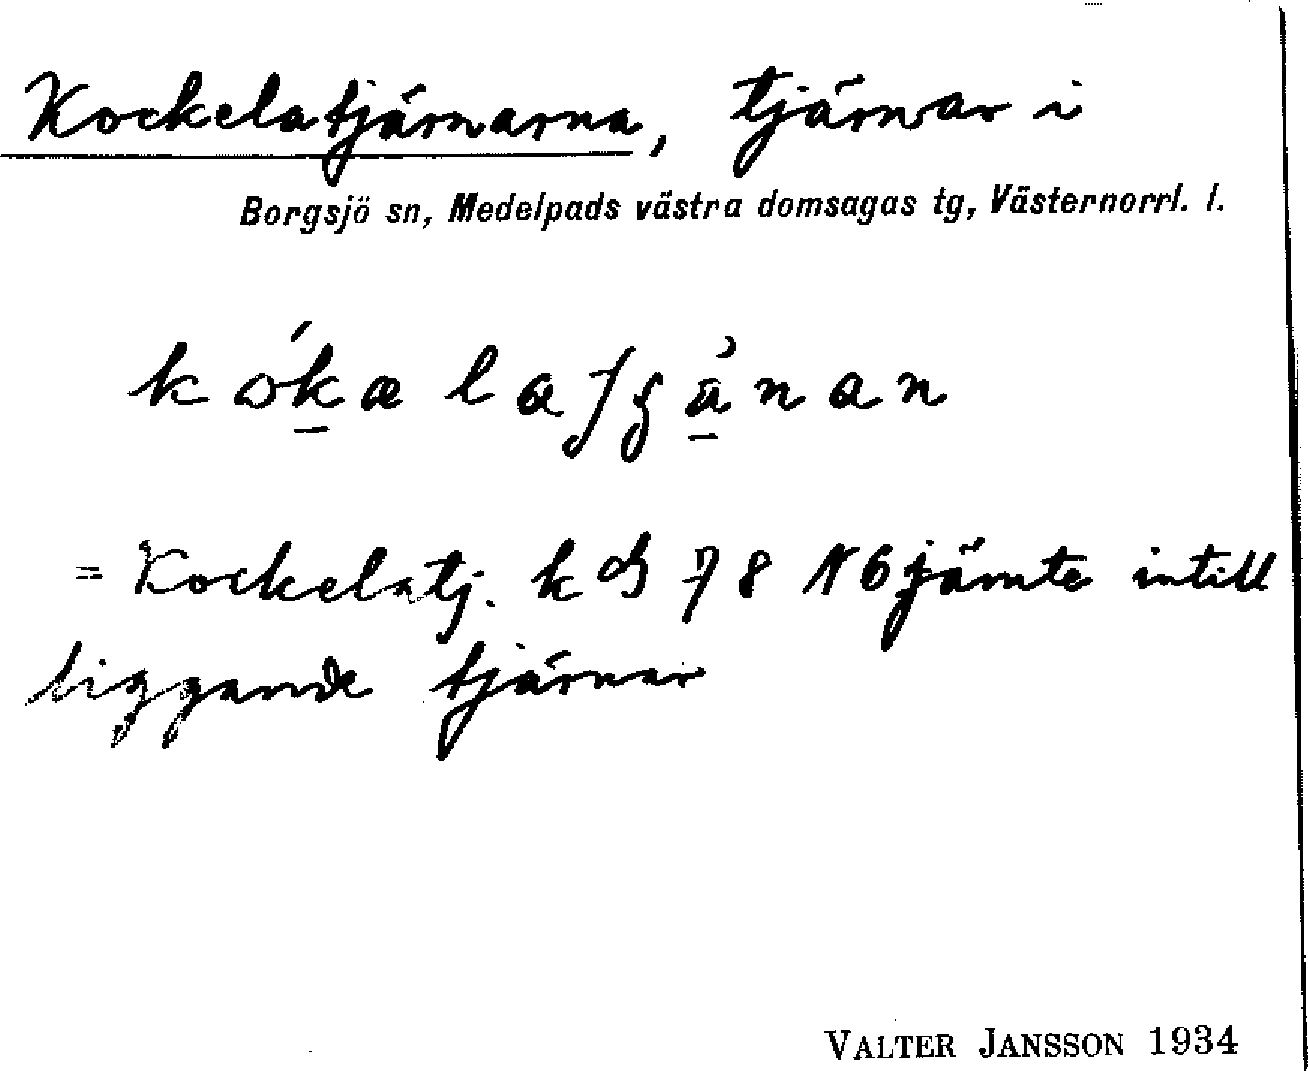 Kockelatjärnarna, tjärnar i
Borgsjö sn, Medelpads västra domsagas tg, Västernorrl. l.
= Kockelatj. k 78 N6 jämte intill
liggande tjärnar
VALTER JANSSON 1934